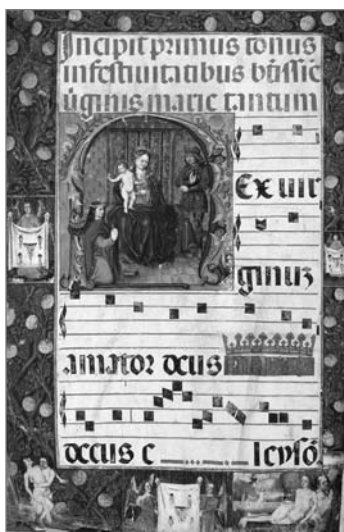 Incipit primus tonus
infestiuitatibus btissie
ũginis marie tantum
Ex uir
ginuz
amator deus
decus e leysõ